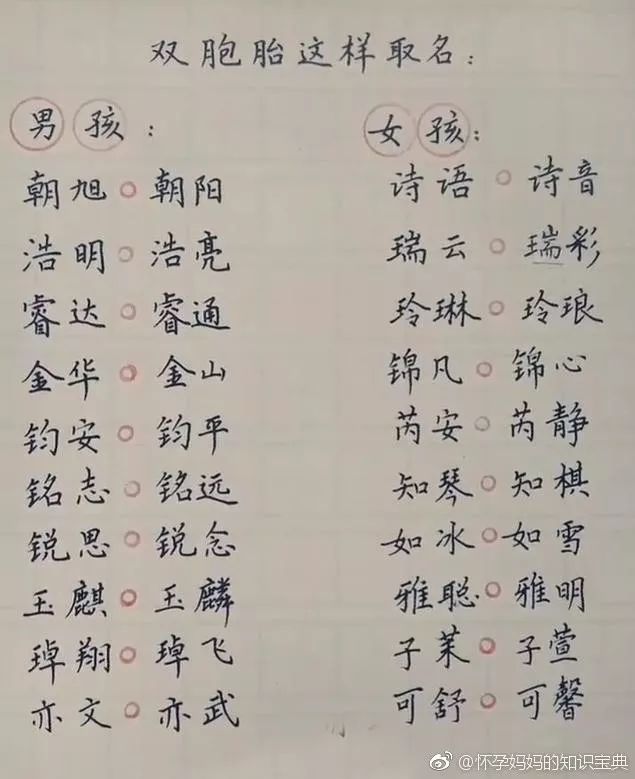 双胞胎这样取名：
男孩：
朝旭○朝阳
浩明○浩亮
睿达○睿通
金华○金山
钧安○钧平
铭志○铭远
锐思○锐念
玉麒○玉麟
琸翔○琸飞
亦文○亦武
女孩：
诗语○诗音
瑞云○瑞彩
玲琳○玲琅
锦凡○锦心
芮安○芮静
知琴○知棋
如冰○如雪
雅聪○雅明
子茉○子萱
可舒○可馨
@怀孕妈妈的知识宝典